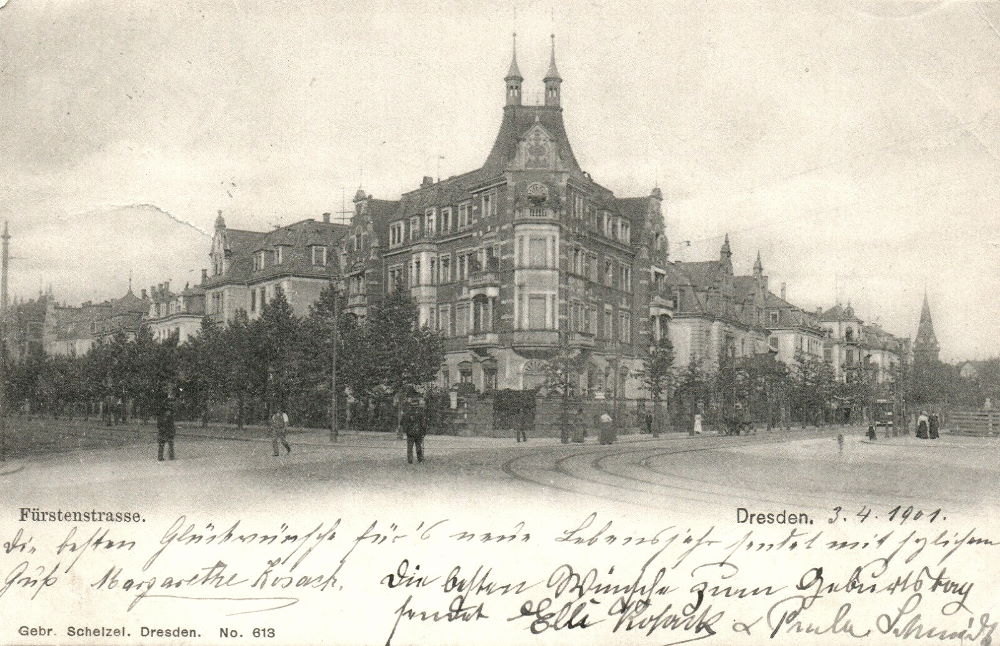 Fürstenstrasse.
Dresden. 3.4.1901.
die besten Glückwünsche für's neue Lebensjahr sendet mit herzlichem
Gruß Margarethe Kosack.
Die besten Wünsche zum Geburtstag
sendet Elli Kosack & Paula Schmidt
Gebr. Schelzel. Dresden. No. 613